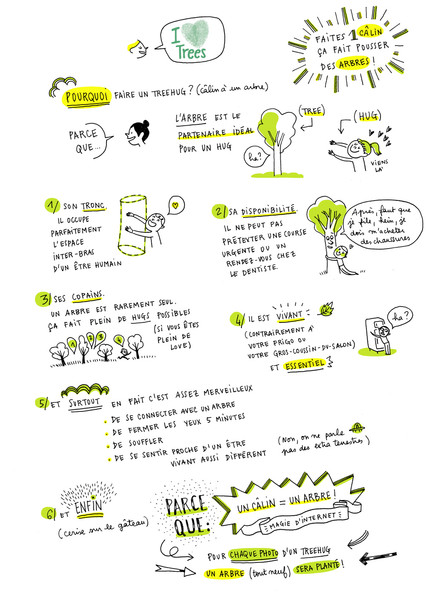 I ♥
Trees
FAITES 1 CÂLIN
ÇA FAIT POUSSER
DES ARBRES !
POURQUOI FAIRE UN TREEHUG ? (câlin à un arbre)
PARCE
QUE...
L'ARBRE EST LE
PARTENAIRE IDÉAL
POUR UN HUG
ha ?
(TREE)
(HUG)
VIENS
LÀ
1/ SON TRONC
IL OCCUPE
PARFAITEMENT
L'ESPACE
INTER-BRAS
D'UN ÊTRE HUMAIN
2/ SA DISPONIBILITÉ
IL NE PEUT PAS
PRÉTEXTER UNE COURSE
URGENTE OU UN
RENDEZ-VOUS CHEZ
LE DENTISTE.
Après, faut que
je file, hein, je
dois m'acheter
des chaussures
3/ SES COPAINS.
UN ARBRE EST RAREMENT SEUL.
ÇA FAIT PLEIN DE HUGS POSSIBLES
(SI VOUS ÊTES
PLEIN DE
LOVE)
1 2 3 4
4/ IL EST VIVANT
(CONTRAIREMENT À
VOTRE FRIGO OU
VOTRE GROS-COUSSIN-DU-SALON)
ET ESSENTIEL !
ha ?
5/ ET SURTOUT EN FAIT C'EST ASSEZ MERVEILLEUX
• DE SE CONNECTER AVEC UN ARBRE
• DE FERMER LES YEUX 5 MINUTES
• DE SOUFFLER
• DE SE SENTIR PROCHE D'UN ÊTRE
VIVANT AUSSI DIFFÉRENT
(Non, on ne parle
pas des extra terrestres)
6/ ET ENFIN
(cerise sur le gâteau)
PARCE
QUE:
UN CÂLIN = UN ARBRE !
MAGIE D'INTERNET
POUR CHAQUE PHOTO D'UN TREEHUG
UN ARBRE (tout neuf) SERA PLANTÉ !